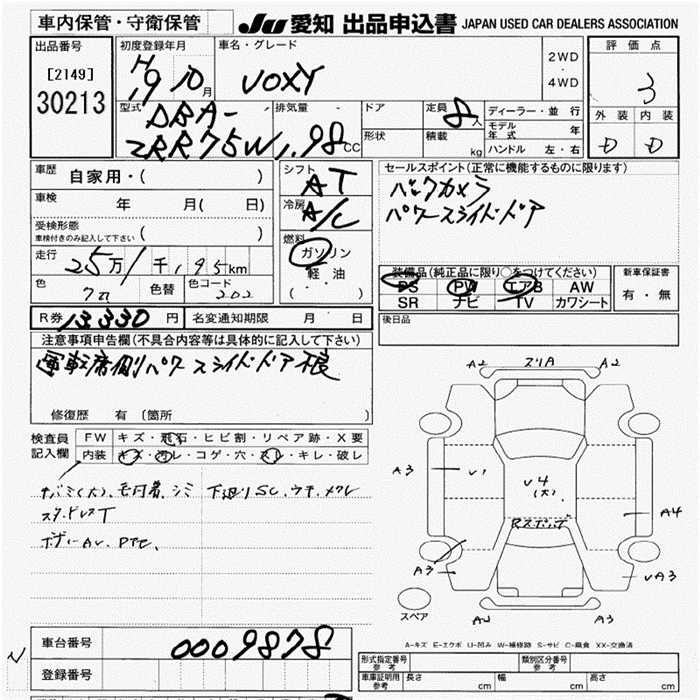 車内保管・守衛保管
JU 愛知 出品申込書 JAPAN USED CAR DEALERS ASSOCIATION
出品番号
[2149]
30213
初度登録年月
H19 10 月
車名・グレード
VOXY
2WD
・
4WD
評価点
3
外装 内装
D D
型式
DBA-
ZRR75W
排気量
1.98 CC
ドア
形状
定員 8 人
積載 kg
ディーラー・並行
モデル年式 年
ハンドル 左・右
車歴 自家用・( )
車検 年 月( 日)
受検形態
車検付きのみ記入して下さい ( )
走行 25万 1千,195km
色 色替 色コード 202
シフト AT
冷房 A/C
燃料
ガソリン
軽油
( ・ )
セールスポイント(正常に機能するものに限ります)
バックカメラ
パワースライドドア
装備品(純正品に限り○をつけてください)
PS PW エアB AW
SR ナビ TV カワシート
新車保証書
有・無
後日品
R券 13,330 円 名変通知期限 月 日
注意事項申告欄(不具合内容等は具体的に記入して下さい)
運転席側パワースライドドア不良
修復歴 有 (箇所
検査員
記入欄
FW キズ・飛石・ヒビ割・リペア跡・X要
内装 キズ・汚レ・コゲ・穴・スレ・キレ・破レ
シミ 下廻りSC
スタッドレスT
A2 A2
A3 V1 V4
(大)
A4
Rスポイラ
A3 A3
スペア A2 A3
A-キズ E-エクボ U-凹み W-補修跡 S-サビ C-腐食 XX-交換済
車台番号 0009878
登録番号
形式指定番号
参考
類別区分番号
参考
車庫証明用
参考
長さ cm 幅 cm 高さ cm